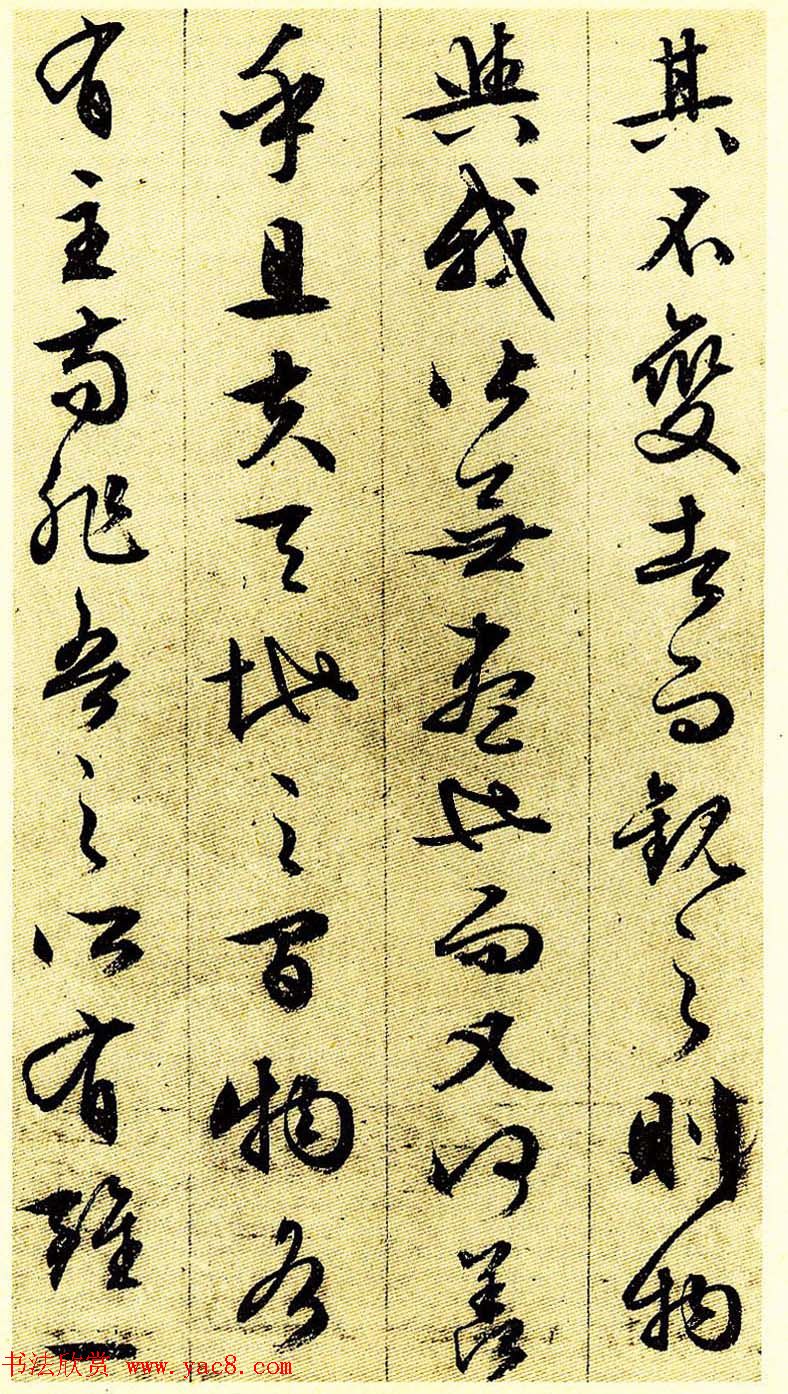 其不變者而觀之則物
與我皆無盡也而又何羨
乎且夫天地之間物各
有主苟非吾之所有雖一
书法欣赏 www.yac8.com